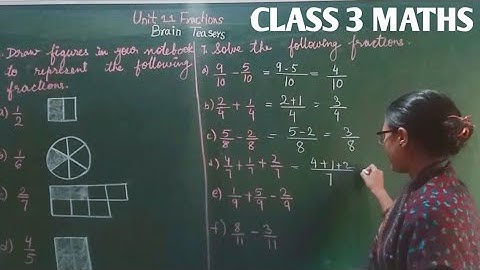 CLASS 3 MATHS
Unit 11 Fractions
Brain Teasers
Draw figures in your notebook
to represent the following
fractions.
a) 1/2
b) 1/6
c) 2/7
d) 4/5
7. Solve the following fractions.
a) 9/10 - 5/10 = 9-5/10 = 4/10
b) 2/4 + 1/4 = 2+1/4 = 3/4
c) 5/8 - 2/8 = 5-2/8 = 3/8
d) 4/7 + 1/7 + 2/7 = 4+1+2/7
e) 1/9 + 5/9 - 2/9
f) 8/11 - 3/11